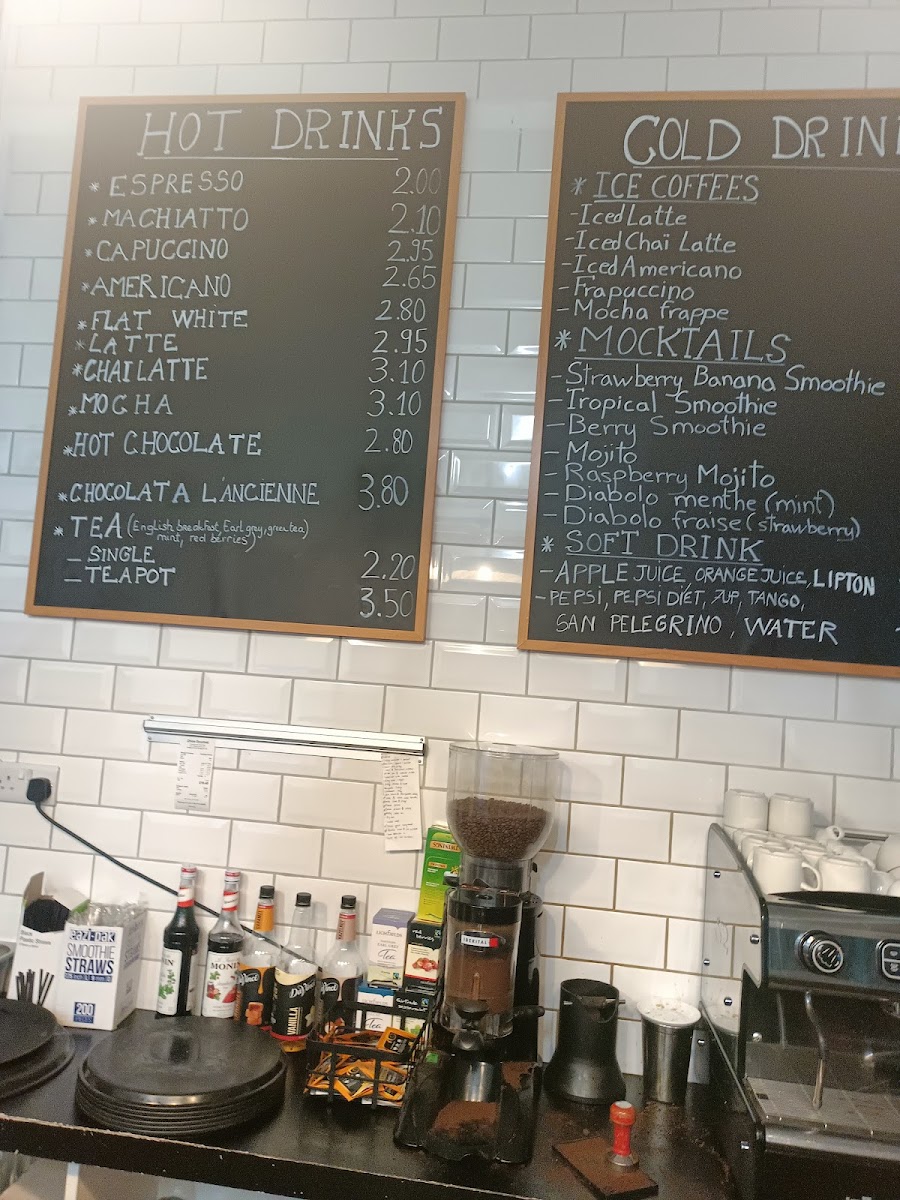 HOT DRINKS
* ESPRESSO 2.00
* MACHIATTO 2.10
* CAPUCCINO 2.95
* AMERICANO 2.65
* FLAT WHITE 2.80
* LATTE 2.95
* CHAI LATTE 3.10
* MOCHA 3.10
* HOT CHOCOLATE 2.80
* CHOCOLAT A L'ANCIENNE 3.80
* TEA (English breakfast, Earl grey, green tea,
mint, red berries)
- SINGLE 2.20
- TEAPOT 3.50
COLD DRIN
* ICE COFFEES
- Iced Latte
- Iced Chaï Latte
- Iced Americano
- Frapuccino
- Mocha frappe
* MOCKTAILS
- Strawberry Banana Smoothie
- Tropical Smoothie
- Berry Smoothie
- Mojito
- Raspberry Mojito
- Diabolo menthe (mint)
- Diabolo fraise (strawberry)
* SOFT DRINK
- APPLE JUICE, ORANGE JUICE, LIPTON
- PEPSI, PEPSI DIET, 7UP, TANGO,
SAN PELEGRINO, WATER
eazi-pak
SMOOTHIE
STRAWS
200
MONIN
DaVinci
VANILLA
DaVinci
Tea
Tea
IBERITAL